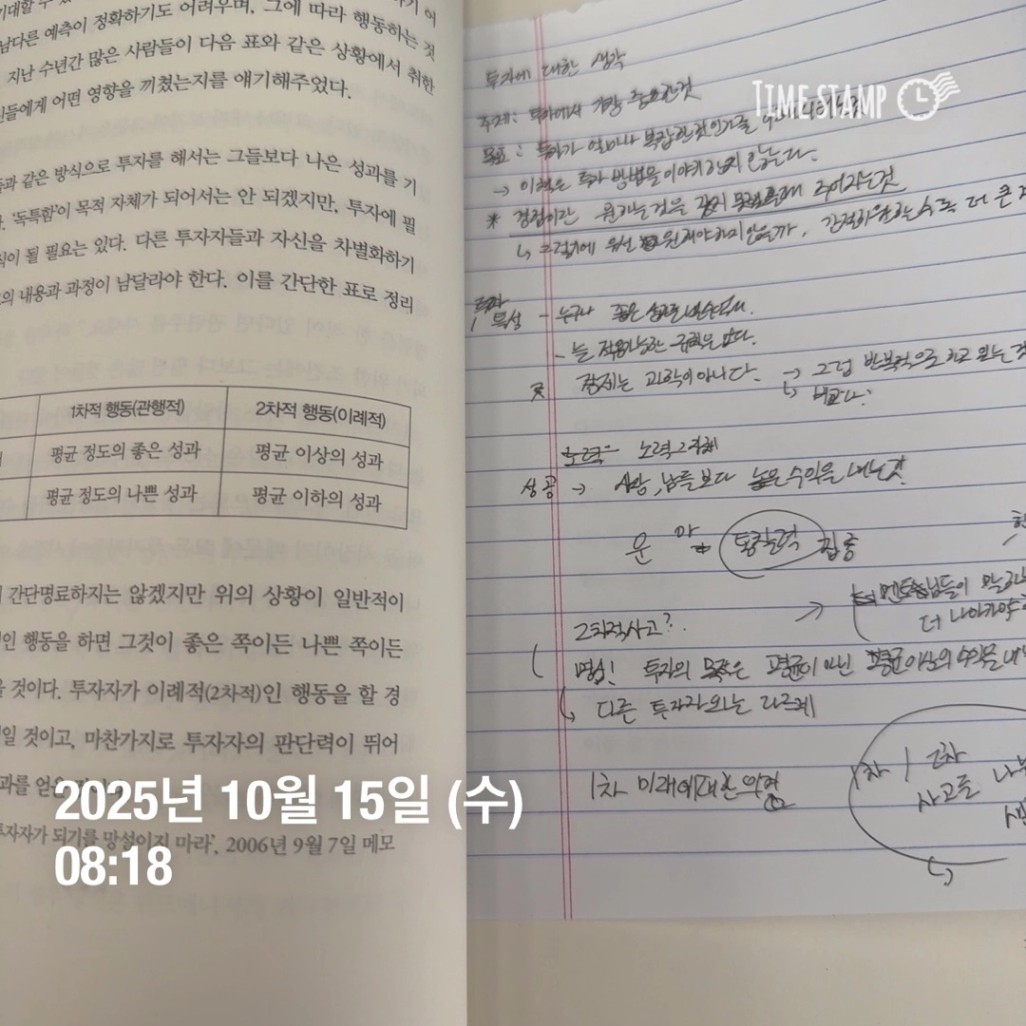 기대할 수
남다른 예측이 정확하기도 어려우며, 그에 따라 행동하는 것
지난 수년간 많은 사람들이 다음 표와 같은 상황에서 취한
인들에게 어떤 영향을 끼쳤는지를 얘기해주었다.
과 같은 방식으로 투자를 해서는 그들보다 나은 성과를 기
'독특함'이 목적 자체가 되어서는 안 되겠지만, 투자에 필
식이 될 필요는 있다. 다른 투자자들과 자신을 차별화하기
의 내용과 과정이 남달라야 한다. 이를 간단한 표로 정리
1차적 행동(관행적) 2차적 행동(이례적)
평균 정도의 좋은 성과 평균 이상의 성과
평균 정도의 나쁜 성과 평균 이하의 성과
간단명료하지는 않겠지만 위의 상황이 일반적이
인 행동을 하면 그것이 좋은 쪽이든 나쁜 쪽이든
을 것이다. 투자자가 이례적(2차적)인 행동을 할 경
일 것이고, 마찬가지로 투자자의 판단력이 뛰어
과를 얻을
투자자가 되기를 망설이지 마라', 2006년 9월 7일 메모
2025년 10월 15일 (수)
08:18
TIMESTAMP
투자에 대한 생각
주제: 투자에서 가장 중요한것
목표: 투자가 얼마나 복잡한것인가를
→ 이책은 투자 방법을 이야기하지 않는다.
* 경험이란 원하는것을 얻지 못했을때 주어지는것
↳ 그렇기에 우선 원해야하지 않을까, 간절히 원할수록 더 큰
투자
특성 - 누구나 좋은 성과를 낼순없다.
- 늘 적용가능한 규칙은 없다.
경제는 과학이 아니다. → 그럼 반복적으로 하고 있는것
노력 = 노력 그 자체
성공 → 시장, 남들보다 높은 수익을 내는것
운 아 통찰력 집중
2차적사고?
→ 멘토님들이 말
더 나아가
명심! 투자의 목적은 평균이 아닌 평균이상의 수익을 내
↳ 다른 투자자와는 다르게
1차 미래에 대한 의견
1차 / 2차
사고를 나누